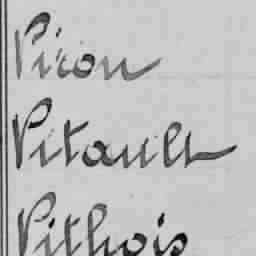 Piron
Pitault
Pithois